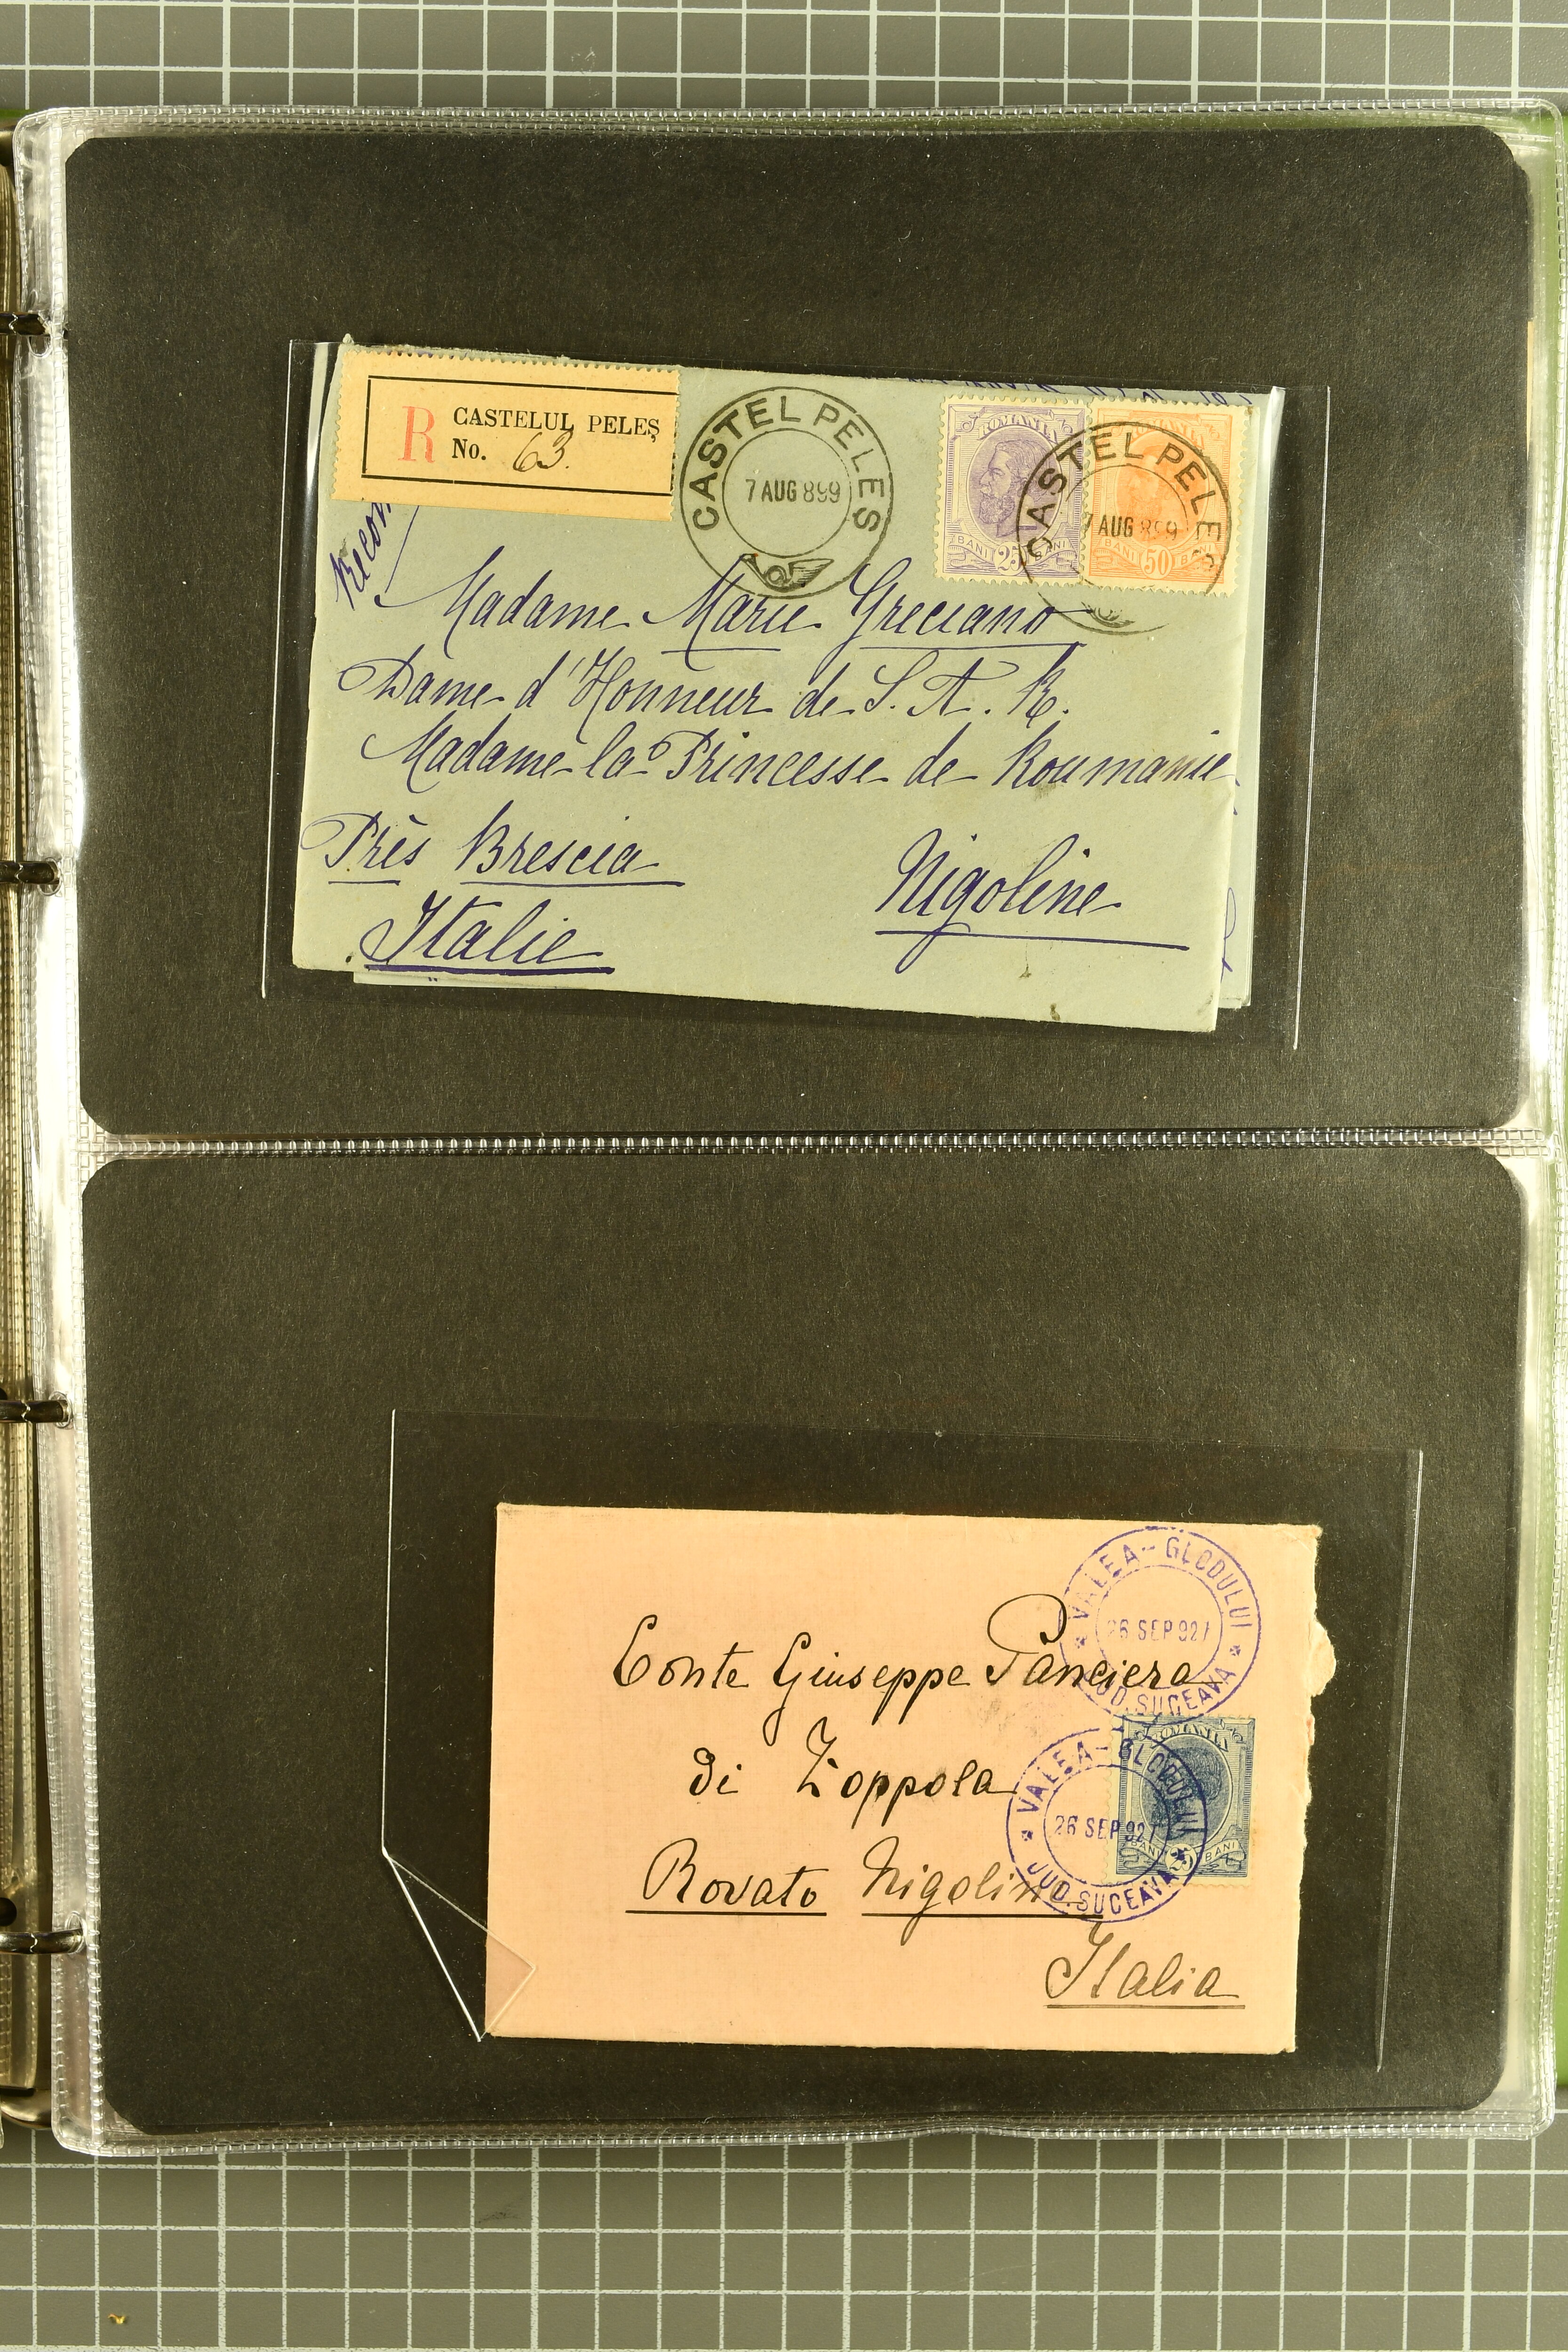 R CASTELUL PELEȘ
No. 63.
CASTEL PELEȘ
7 AUG 899
ROMANIA
BANI 25 BANI
ROMANIA
BANI 50 BANI
CASTEL PELEȘ
7 AUG 899
Madame Marie Greciano
Dame d'Honneur de S. A. R.
Madame la Princesse de Roumanie
Près Brescia
Nigoline
Italie
VALEA-GLODULUI
26 SEP 927
JUD. SUCEAVA
Conte Giuseppe Panciera
di Zoppola
ROMANIA
BANI 25 BANI
VALEA-GLODULUI
26 SEP 927
JUD. SUCEAVA
Rovato Nigoline
Italia